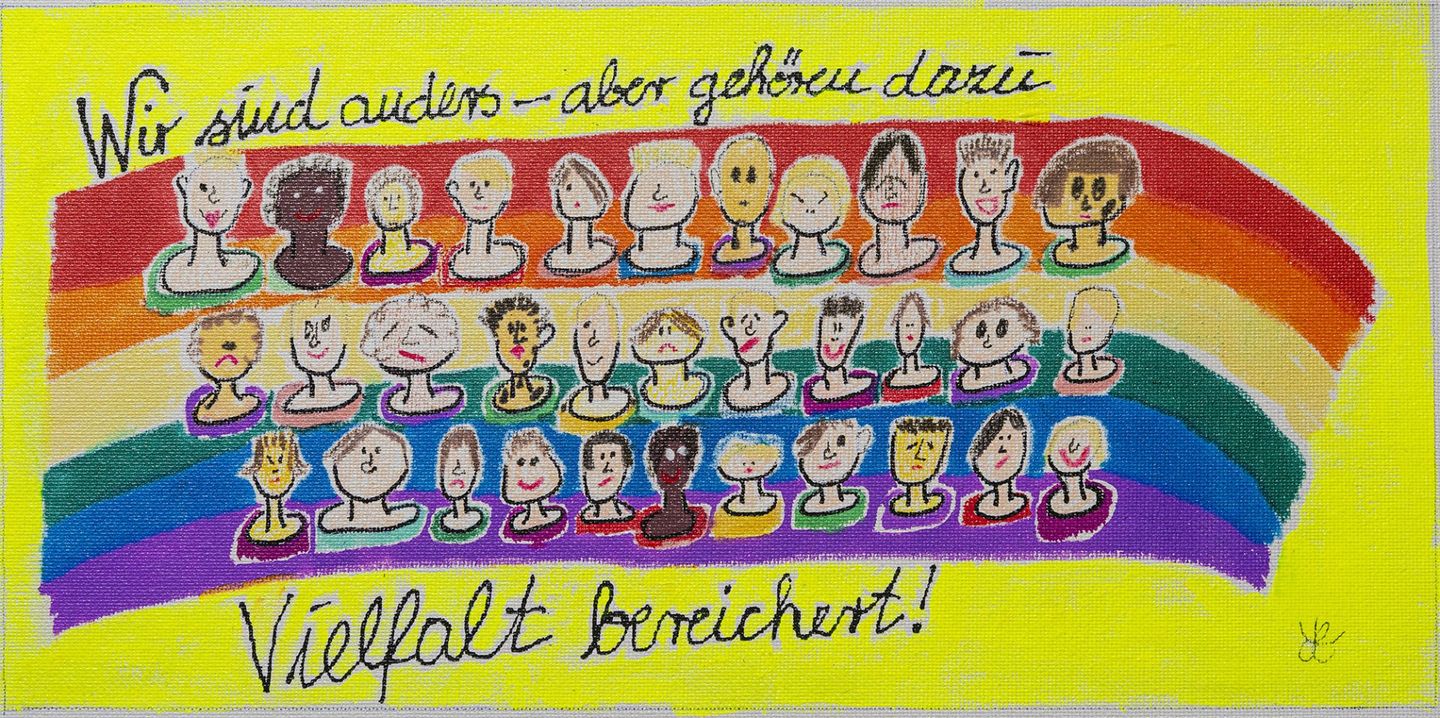 Wir sind anders – aber gehören dazu
Vielfalt bereichert!